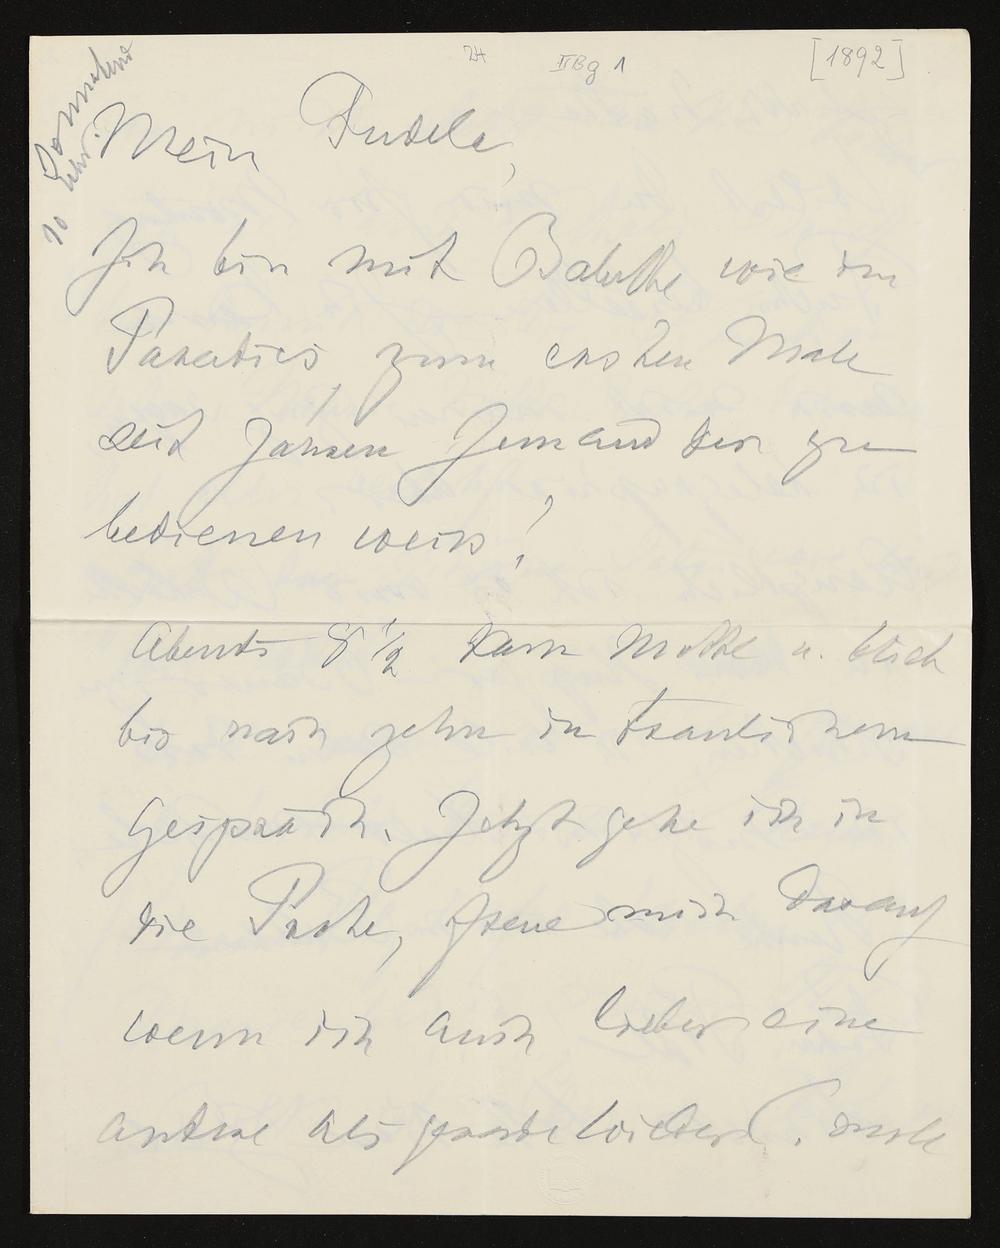 24 II Bg 1 [1892]
Sonnabend
10 Uhr.
Mein Pudele,
Ich bin mit Babette wie im
Paradies, zum ersten Male
seit Jahren Jemand der zu
bedienen weiss!
Abends 8 1/2 kam Mottl u. blieb
bis nach zehn in traulichem
Gespräch. Jetzt gehe ich in
die Probe, freue mich darauf
wenn ich auch lieber eine
andere als gerade